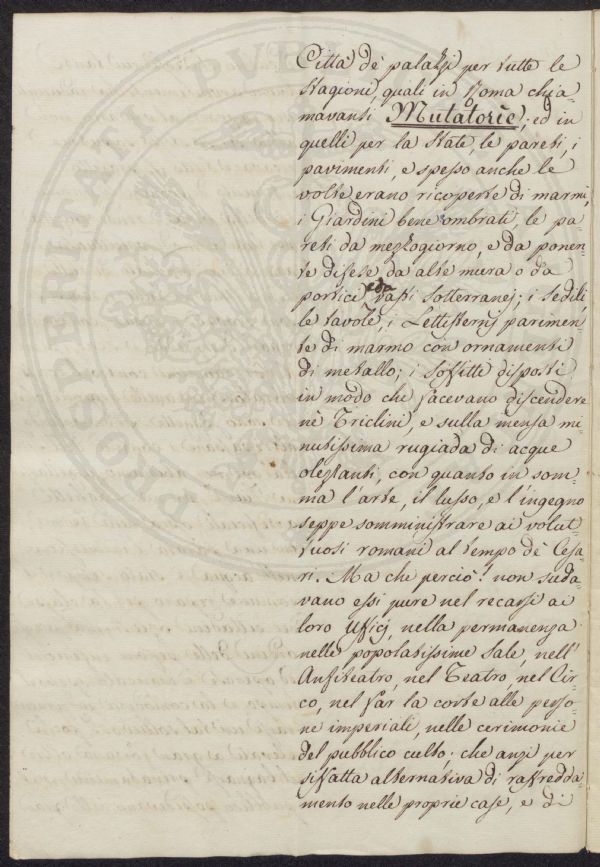 Città de' palazzi per tutte le
stagioni, quali in Roma chia=
mavansi Mutatorie; ed in
quelli per la state, le pareti, i
pavimenti, e spesso anche le
volte erano ricoperte di marmi,
i Giardini bene ombrati, le pa=
reti da mezzogiorno, e da ponen=
te difese da alte mura o da
portici e da vasti sotterranei; i sedili,
le tavole, i Lettisternj parimen=
te di marmo con ornamenti
di metallo; i soffitti disposti
in modo che facevano discendere
nè Triclini, e sulla mensa mi
nutissima rugiada di acque
olezzanti, con quanto in som=
ma l'arte, il lusso, e l'ingegno
seppe somministrare ai volut
tuosi romani al tempo de' Cesa
ri. Ma che perciò! non suda=
vano essi pure nel recarsi ai
loro Ufficj, nella permanenza
nelle popolatissime sale, nell'
Anfiteatro, nel Teatro, nel Cir=
co, nel far la corte alle perso=
ne imperiali, nelle cerimonie
del pubblico culto; che anzi per
siffatta alternativa di raffredda=
mento nelle proprie case, e di